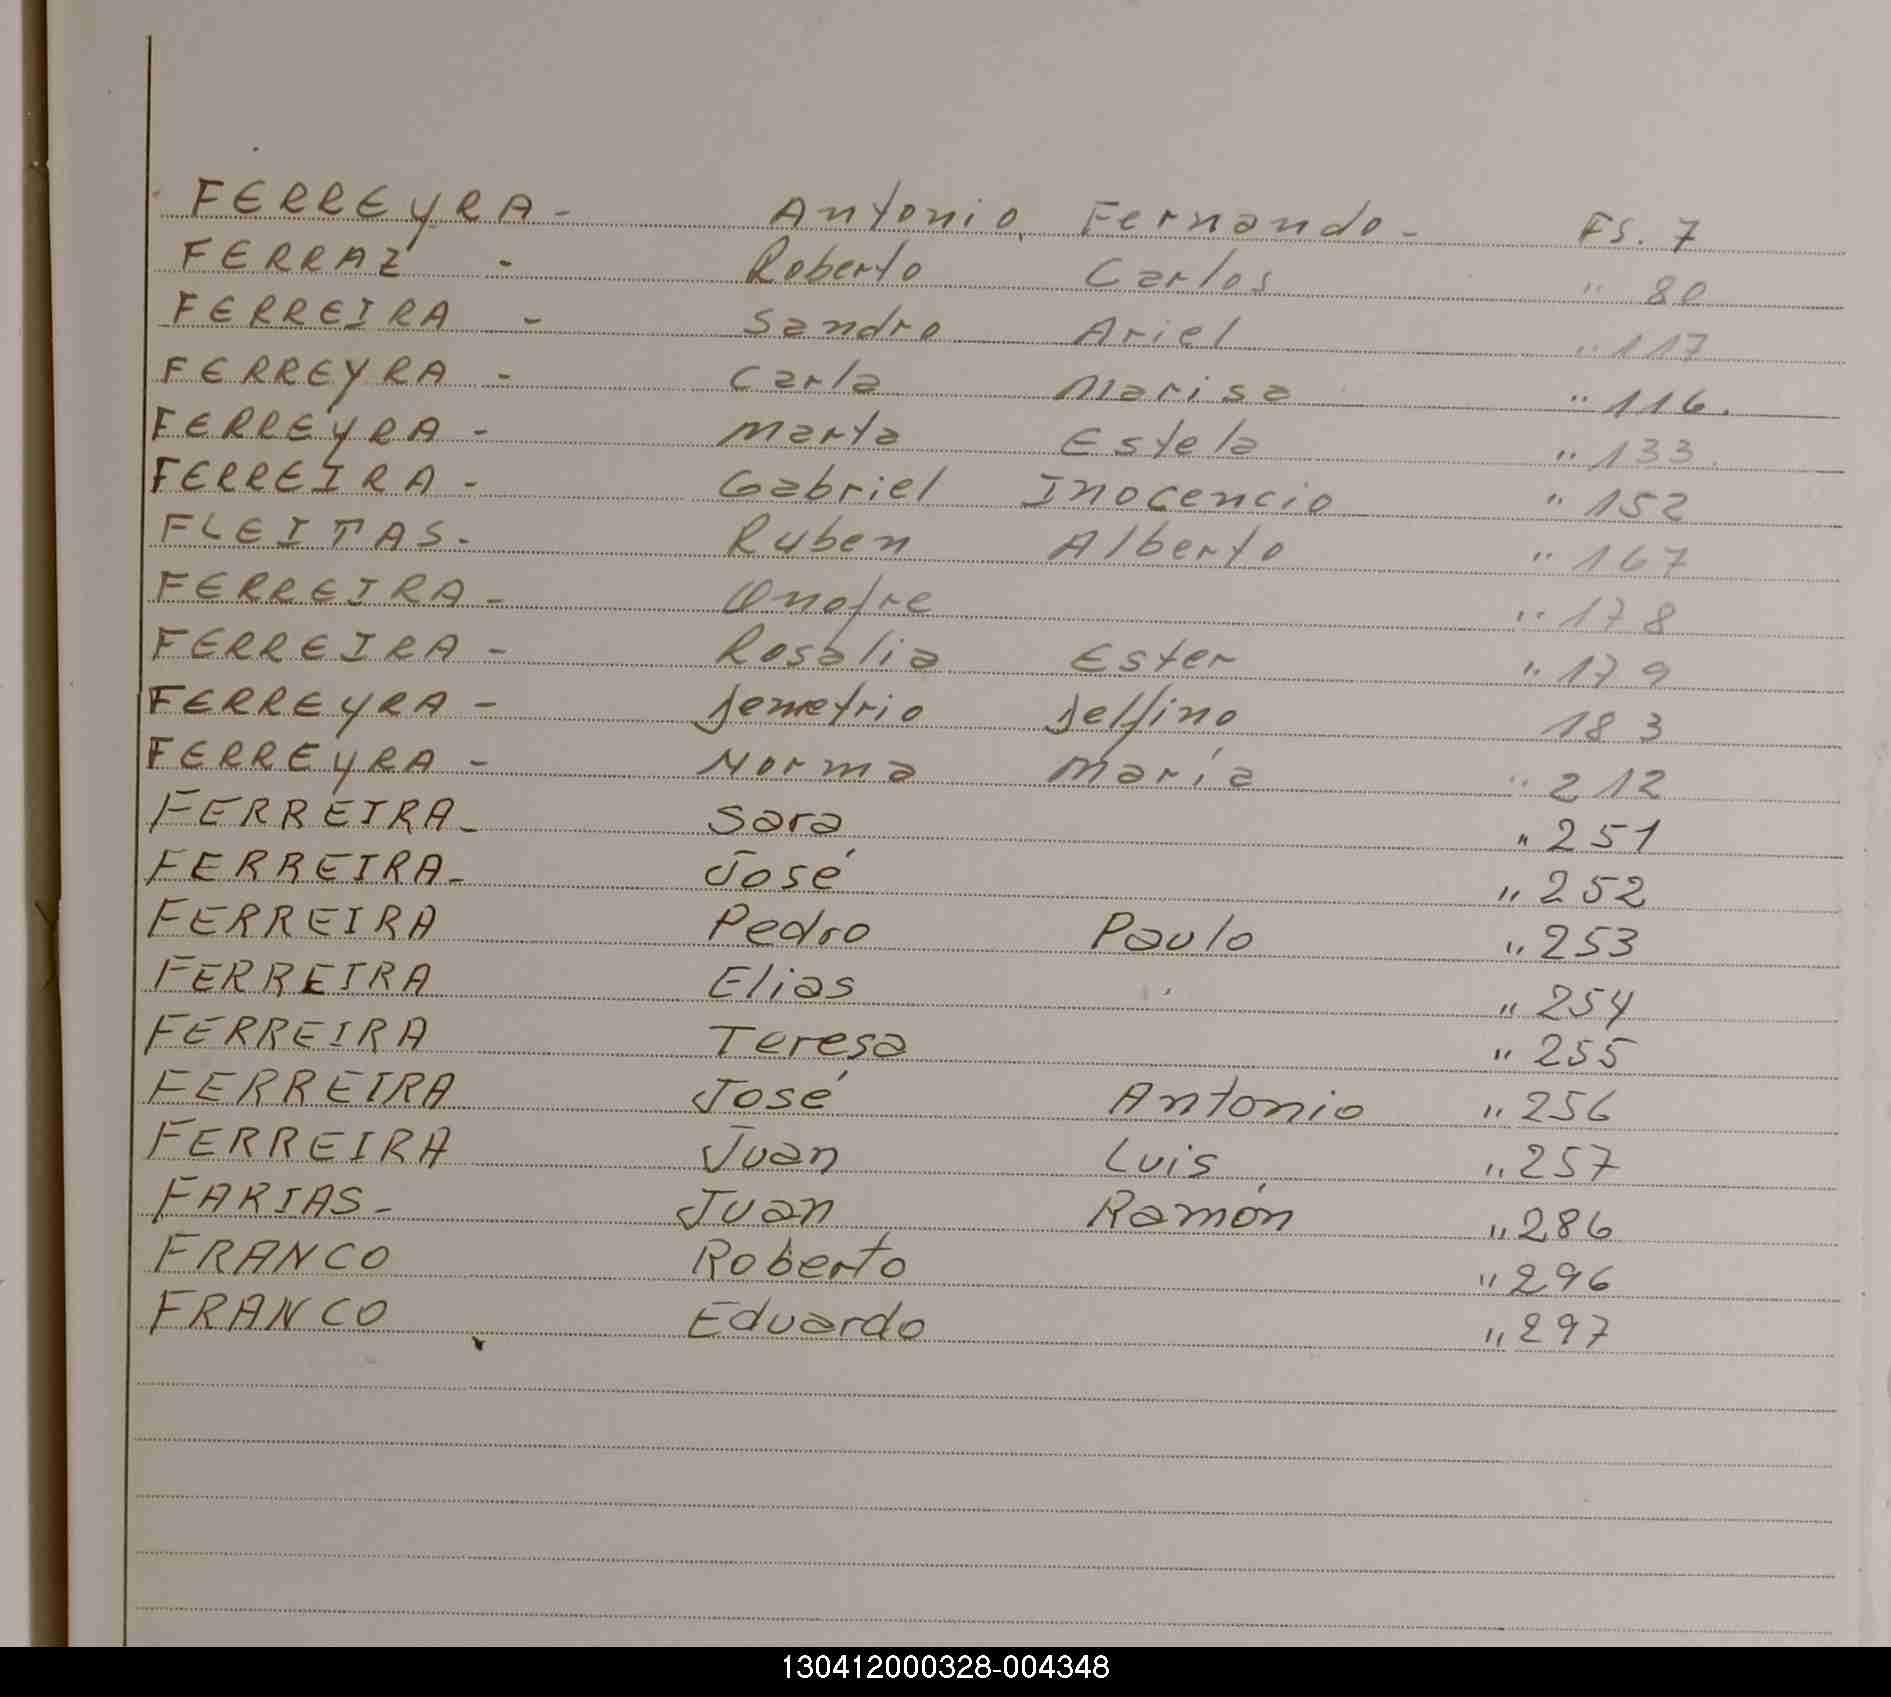 FERREYRA - Antonio Fernando - FS. 7
FERRAZ - Roberto Carlos " 80
FERREIRA - Sandro Ariel " 117
FERREYRA - Carla Marisa " 116.
FERREYRA - Marta Estela " 133.
FERREIRA - Gabriel Inocencio " 152
FLEITAS - Ruben Alberto " 167
FERREIRA - Onofre " 178
FERREIRA - Rosalia Ester " 179
FERREYRA - Demetrio Delfino 183
FERREYRA - Norma María " 212
FERREIRA - Sara " 251
FERREIRA - José " 252
FERREIRA Pedro Paulo " 253
FERREIRA Elias " 254
FERREIRA Teresa " 255
FERREIRA José Antonio " 256
FERREIRA Juan Luis " 257
FARIAS - Juan Ramón " 286
FRANCO Roberto " 296
FRANCO Eduardo " 297
130412000328-004348